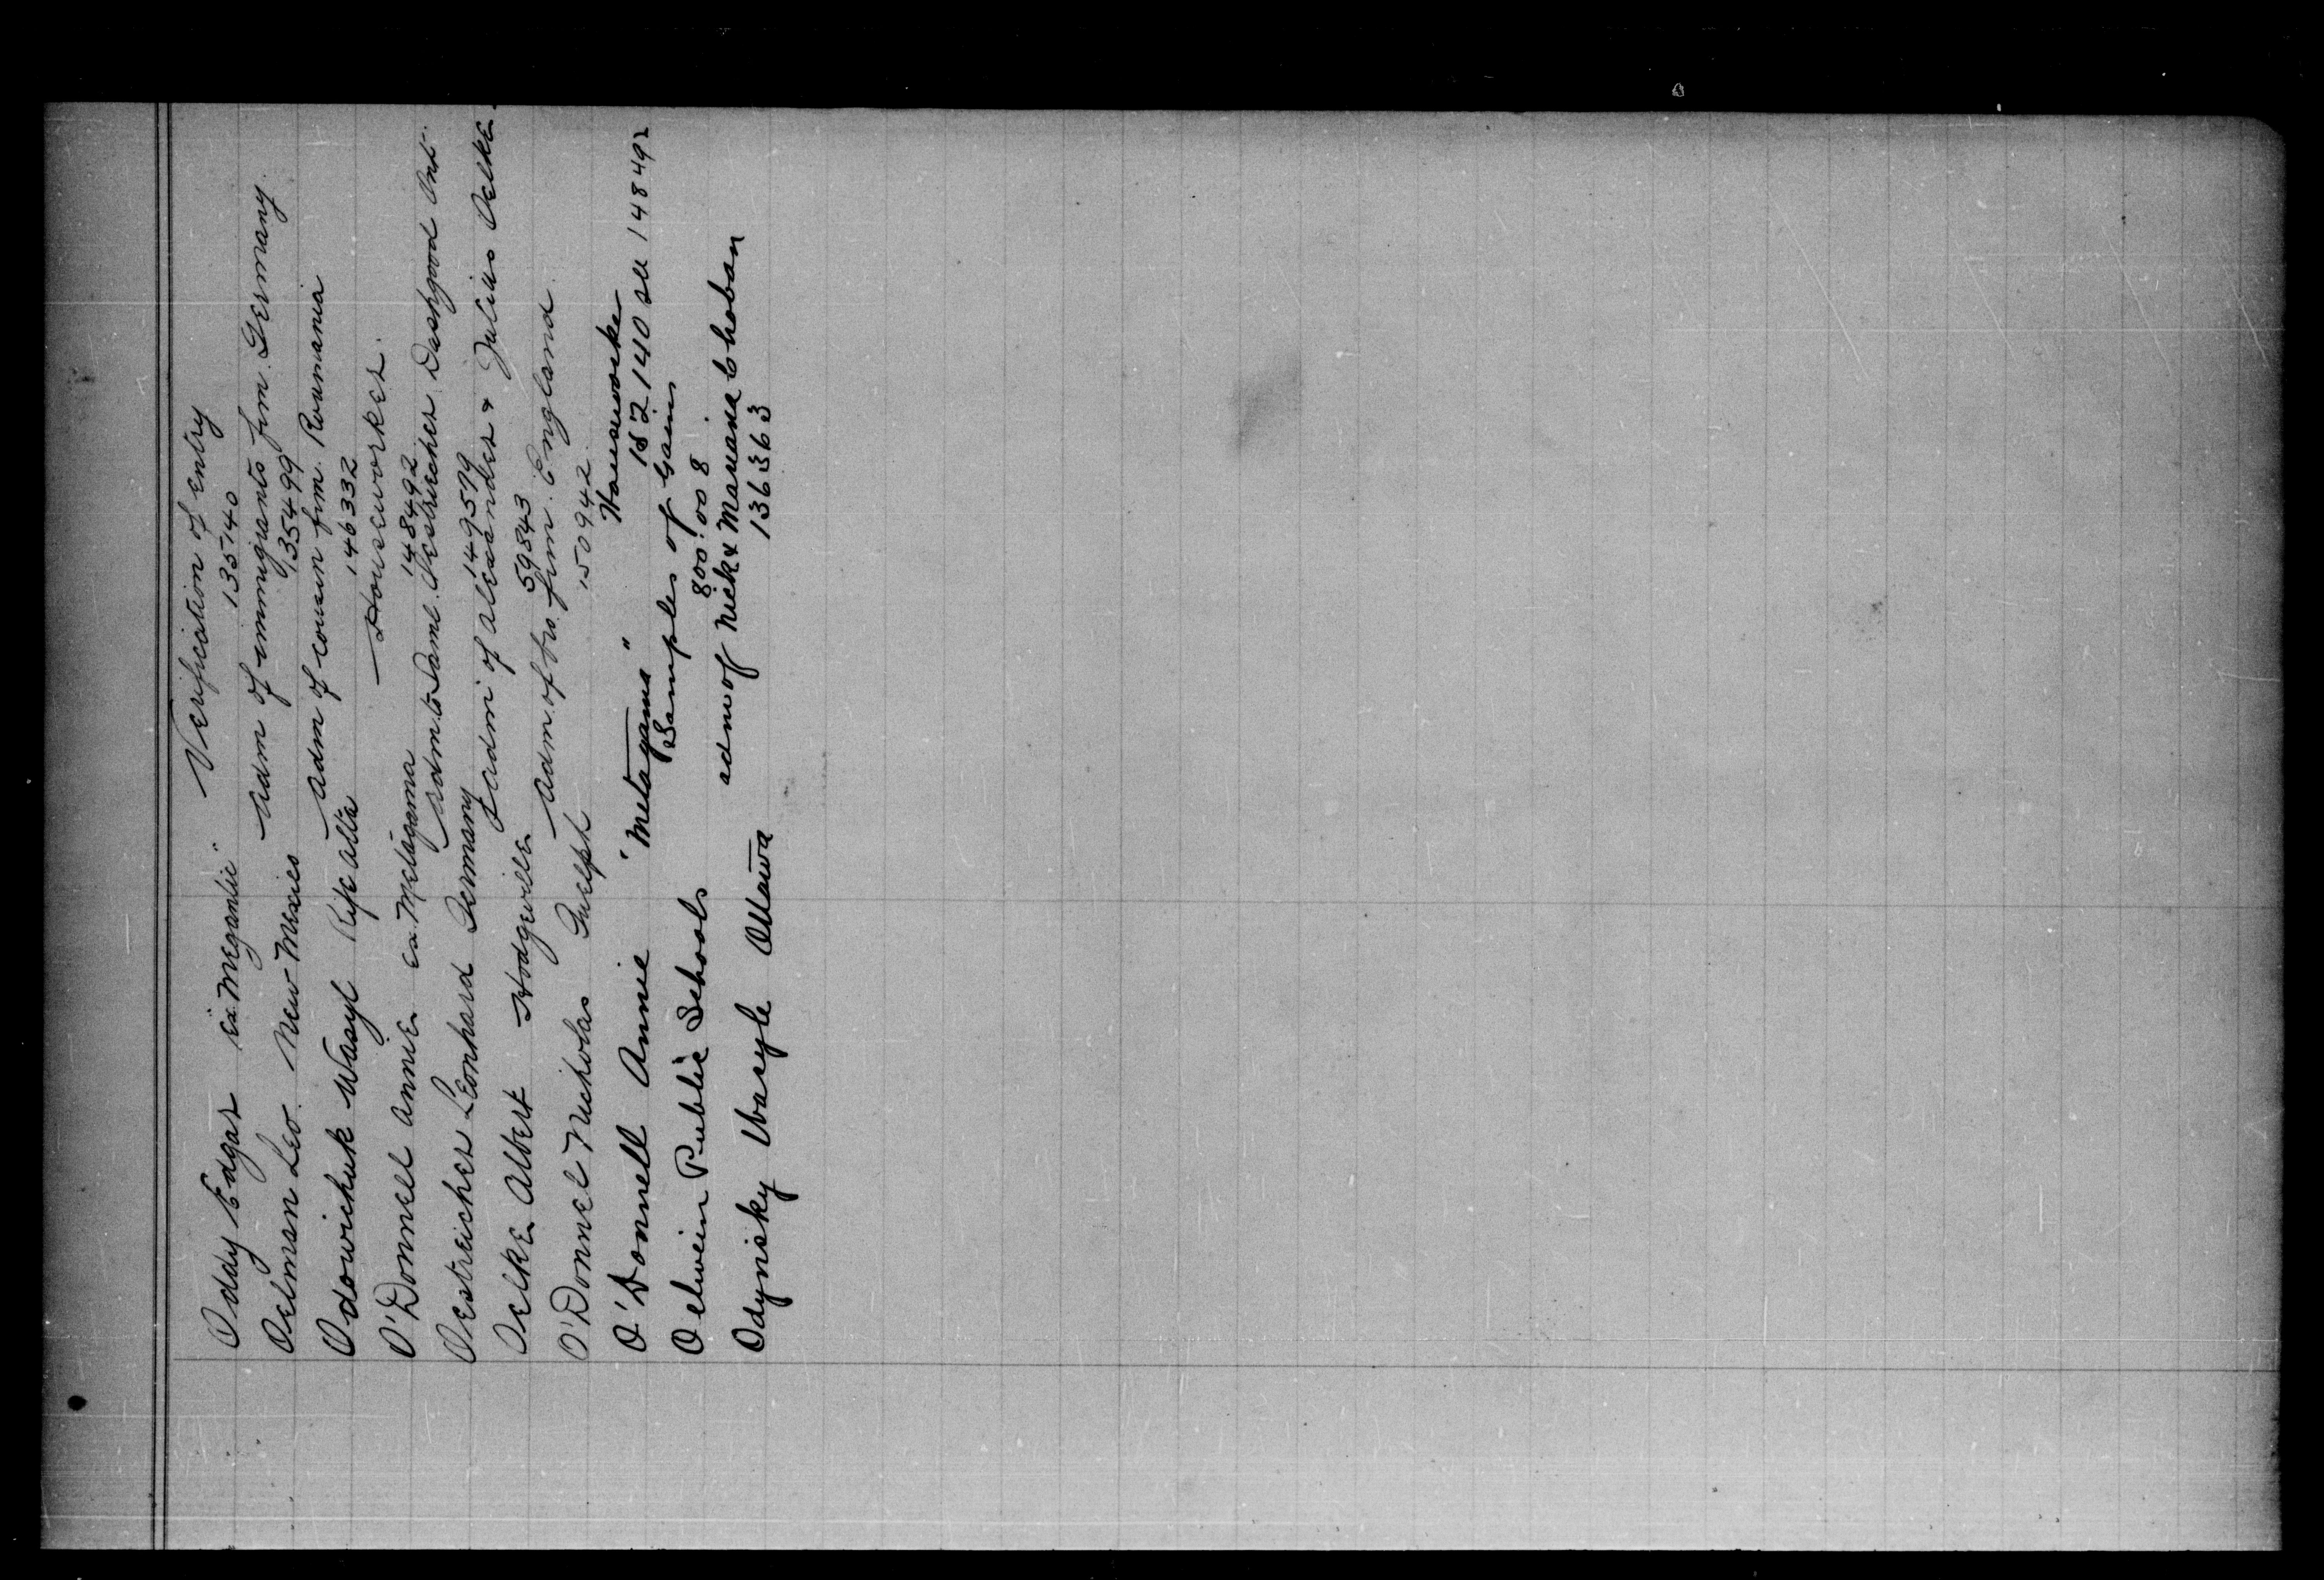 Oddy Edgar ex "Megantic" Verification of entry
135140
Oelman Leo. New Mexico Adm of immigrants frm. Germany.
135499
Odowichuk Wasyl Rife Alta Adm of cousin frm. Roumania
146332
O'Donnell Annie ex. Metagama Houseworker.
148492
Oestreicher Leonhard Germany Adm. to Saml. Oestreicher Dashwood Ont.
149579
Oelke Albert Hodgeville Adm of Alexander & Julius Oelke
59843
O'Donnel Nicholas Guelph Adm. of bro. frm. England.
150942.
O'Donnell Annie "Metagama" Houseworker
152140 see 148492
Oelwein Public Schools Samples of Grains
800:008
Odynisky Wasyle Ottawa adm of Nick & Choban
1363363